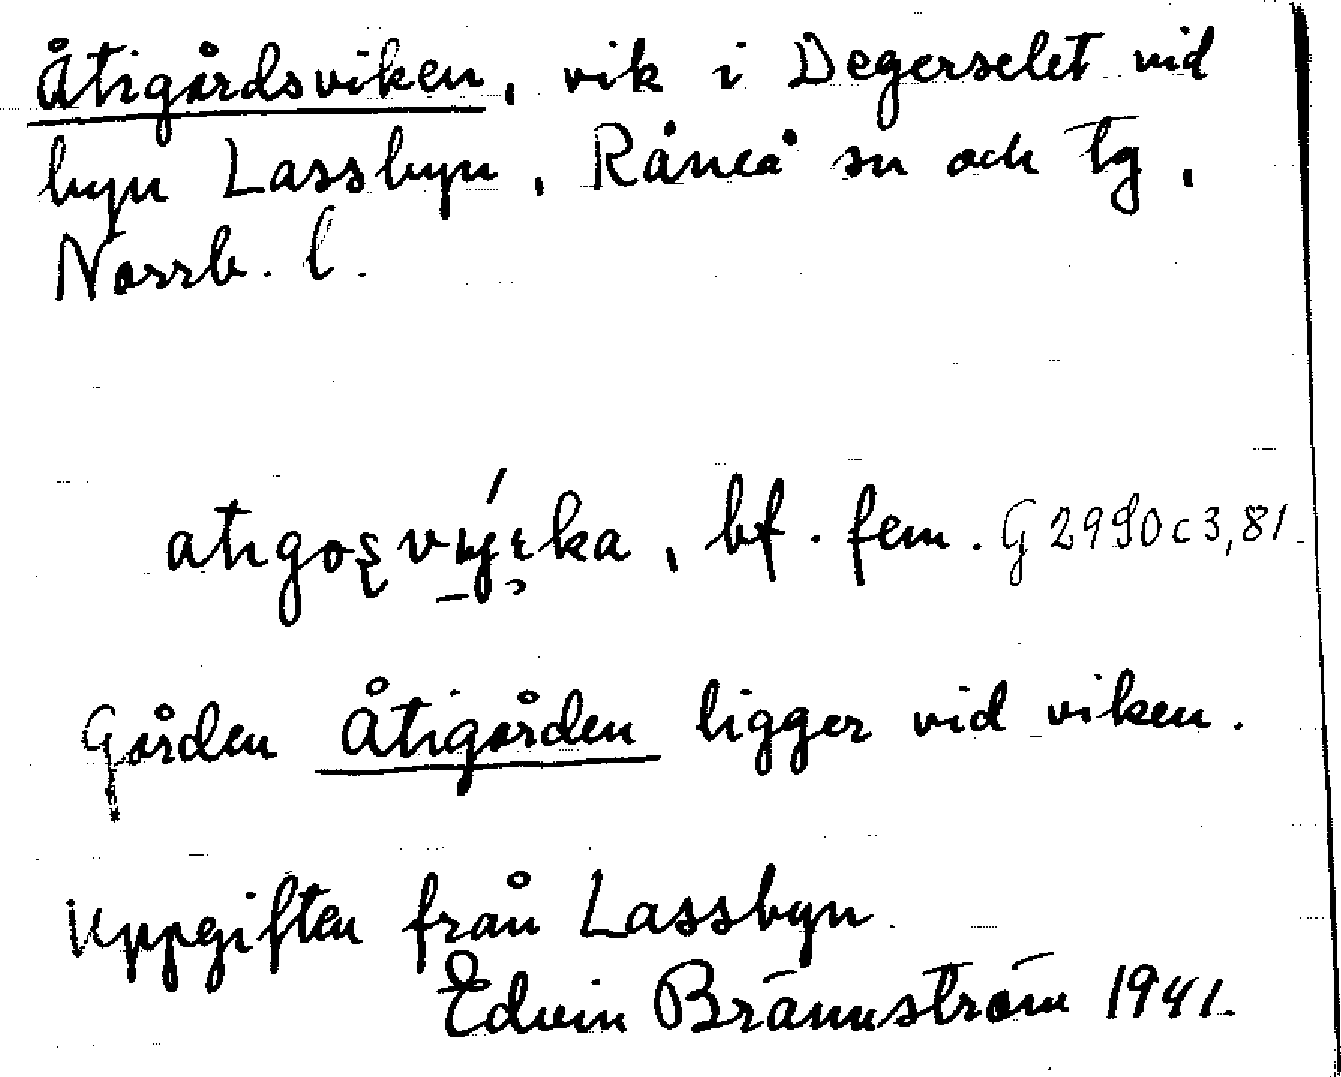 Åtigårdsviken, vik i Degerselet vid
byn Lassbyn, Råneå sn och tg,
Norrb. l.
bf. fem. G 2990 c 3, 81.
Gården Åtigården ligger vid viken.
Uppgiften från Lassbyn.
Edvin Brännström 1941.